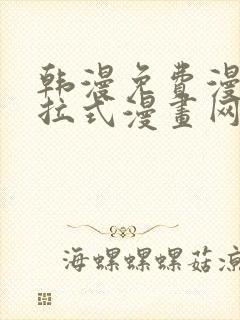 韩漫免费漫
拉式漫畫网
海螺螺螺菇凉